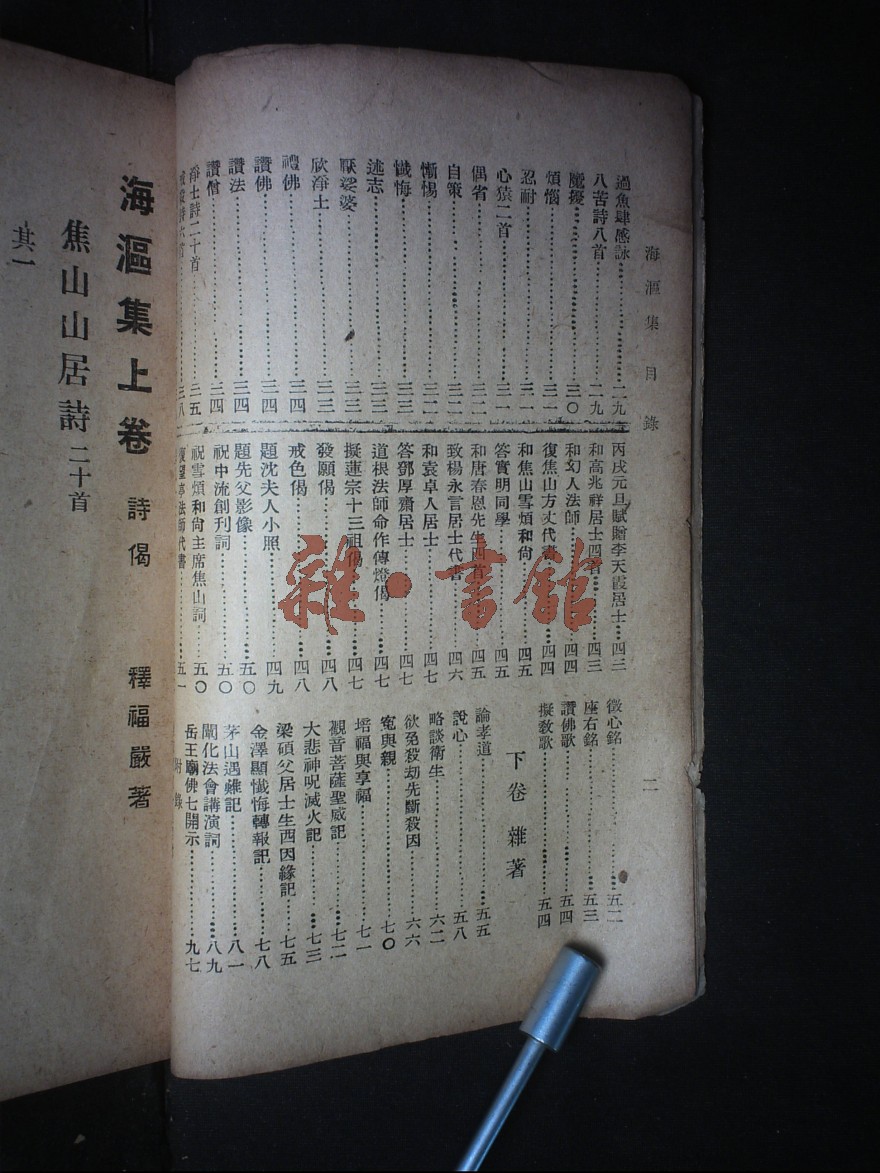 海漚集目錄
二
過魚肆感詠………二九
八苦詩八首………二九
魔擾………三〇
煩惱………三一
忍耐………三一
心猿二首………三一
偶省………三二
自策………三二
慚惕………三二
懺悔………三三
述志………三三
厭娑婆………三三
欣淨土………三三
禮佛………三四
讚佛………三四
讚法………三四
讚僧………三四
淨土詩二十首………三五
三八
丙戌元旦賦贈李天霞居士………四三
和高兆祥居士四首………四三
和幻人法師………四四
復焦山方丈代書………四四
和焦山雪煩和尙………四五
答實明同學………四五
和唐春恩先生四首………四五
致楊永言居士代書………四六
和袁卓人居士………四七
答鄧厚齋居士………四七
道根法師命作傳燈偈………四七
擬蓮宗十三祖偈………四七
發願偈………四八
戒色偈………四八
題沈夫人小照………四九
題先父影像………五〇
祝中流創刊詞………五〇
祝雪煩和尙主席焦山詞………五〇
亭法師代書………五一
徵心銘………五二
座右銘………五三
讚佛歌………五四
擬敎歌………五四
下卷 雜著
論孝道………五五
說心………五八
略談衛生………六二
欲免殺劫先斷殺因………六六
寃與親………七〇
培福與享福………七一
觀音菩薩聖威記………七二
大悲神呪滅火記………七三
梁碩父居士生西因緣記………七五
金澤顯懺悔轉報記………七八
茅山遇難記………八一
闡化法會講演詞………八九
岳王廟佛七開示………九七
附錄
海漚集上卷 詩偈 釋福嚴著
焦山山居詩二十首
其一
雜·書館